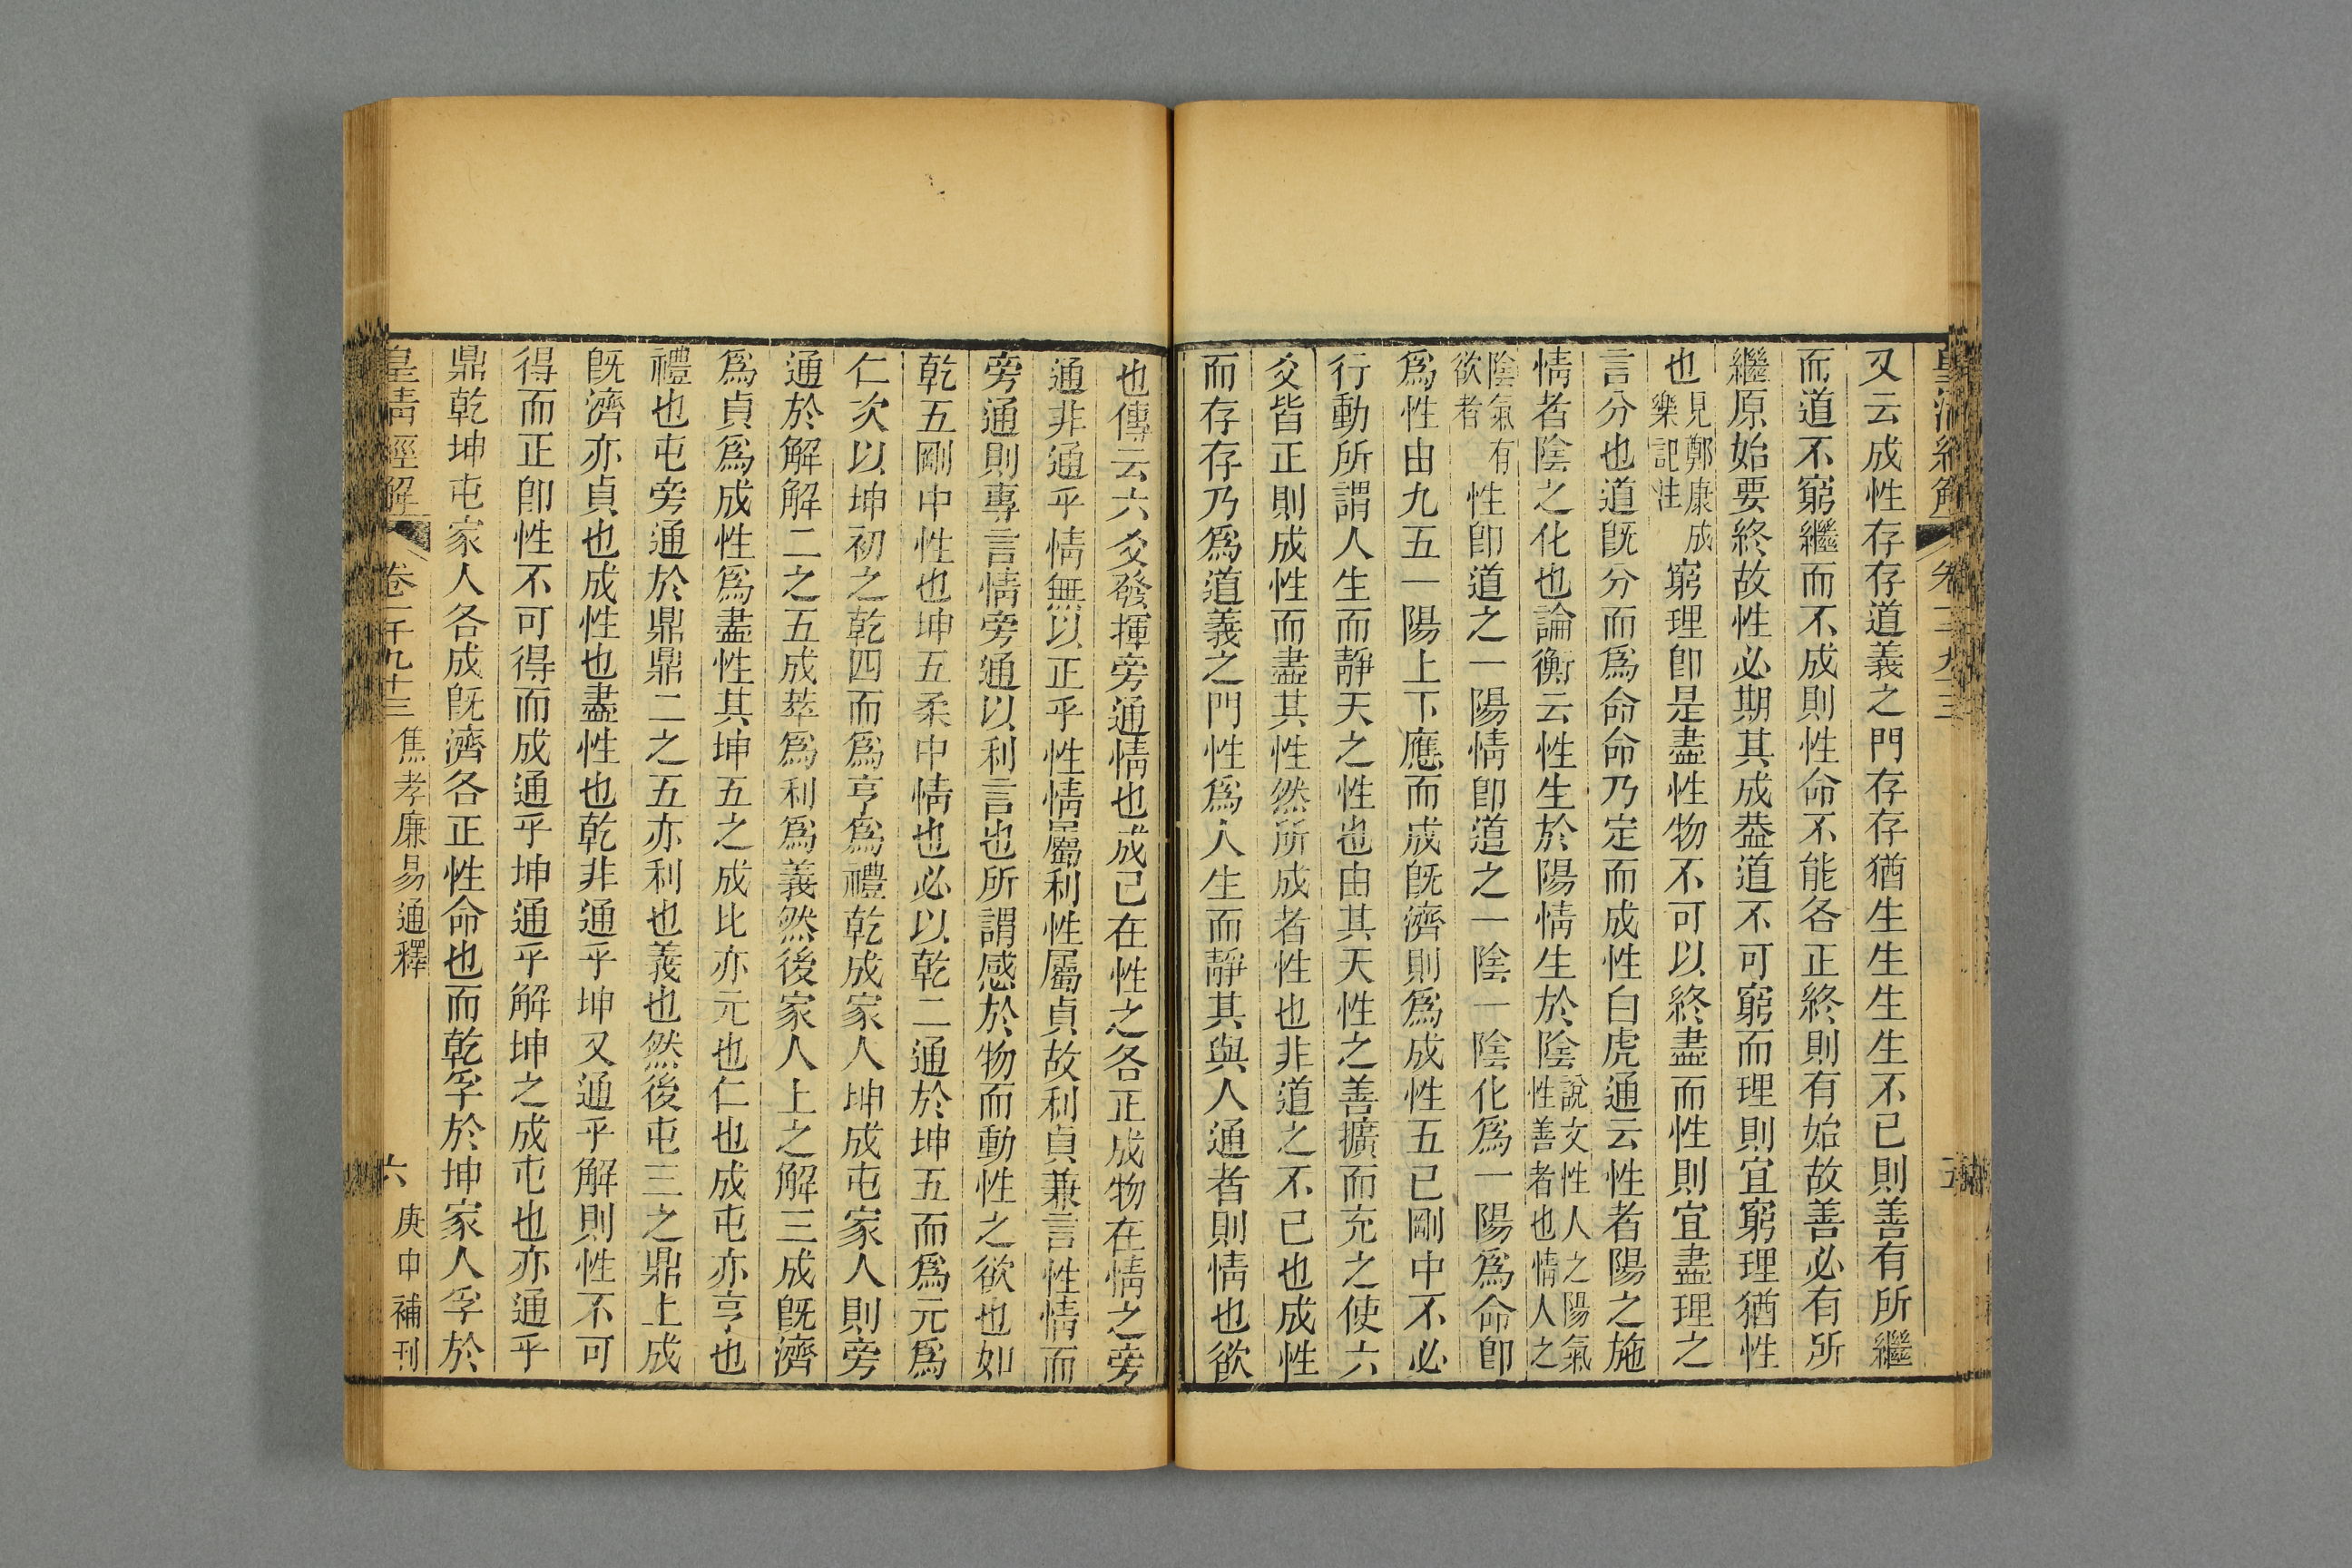 又云成性存存道義之門存存猶生生生生不已則善有所繼
而道不窮繼而不成則性命不能各正終則有始故善必有所
繼原始要終故性必期其成葢道不可窮而理則宜窮理猶性
也見鄭康成樂記注窮理卽是盡性物不可以終盡而性則宜盡理之
言分也道旣分而爲命命乃定而成性白虎通云性者陽之施
情者陰之化也論衡云性生於陽情生於陰說文性人之陽氣性善者也情人之
陰氣有欲者性卽道之一陽情卽道之一陰一陰化爲一陽爲命卽
爲性由九五一陽上下應而成旣濟則爲成性五已剛中不必
行動所謂人生而靜天之性也由其天性之善擴而充之使六
爻皆正則成性而盡其性然所成者性也非道之不已也成性
而存存乃爲道義之門性爲人生而靜其與人通者則情也欲
也傳云六爻發揮旁通情也成已在性之各正成物在情之旁
通非通乎情無以正乎性情屬利性屬貞故利貞兼言性情而
旁通則專言情旁通以利言也所謂感於物而動性之欲也如
乾五剛中性也坤五柔中情也必以乾二通於坤五而爲元爲
仁次以坤初之乾四而爲亨爲禮乾成家人坤成屯家人則旁
通於解解二之五成萃爲利爲義然後家人上之解三成旣濟
爲貞爲成性爲盡性其坤五之成比亦元也仁也成屯亦亨也
禮也屯旁通於鼎鼎二之五亦利也義也然後屯三之鼎上成
旣濟亦貞也成性也盡性也乾非通乎坤又通乎解則性不可
得而正卽性不可得而成通乎坤通乎解坤之成屯也亦通乎
鼎乾坤屯家人各成旣濟各正性命也而乾孚於坤家人孚於
皇清經解 卷一千九十三 焦孝廉易通釋 六 庚申補刊